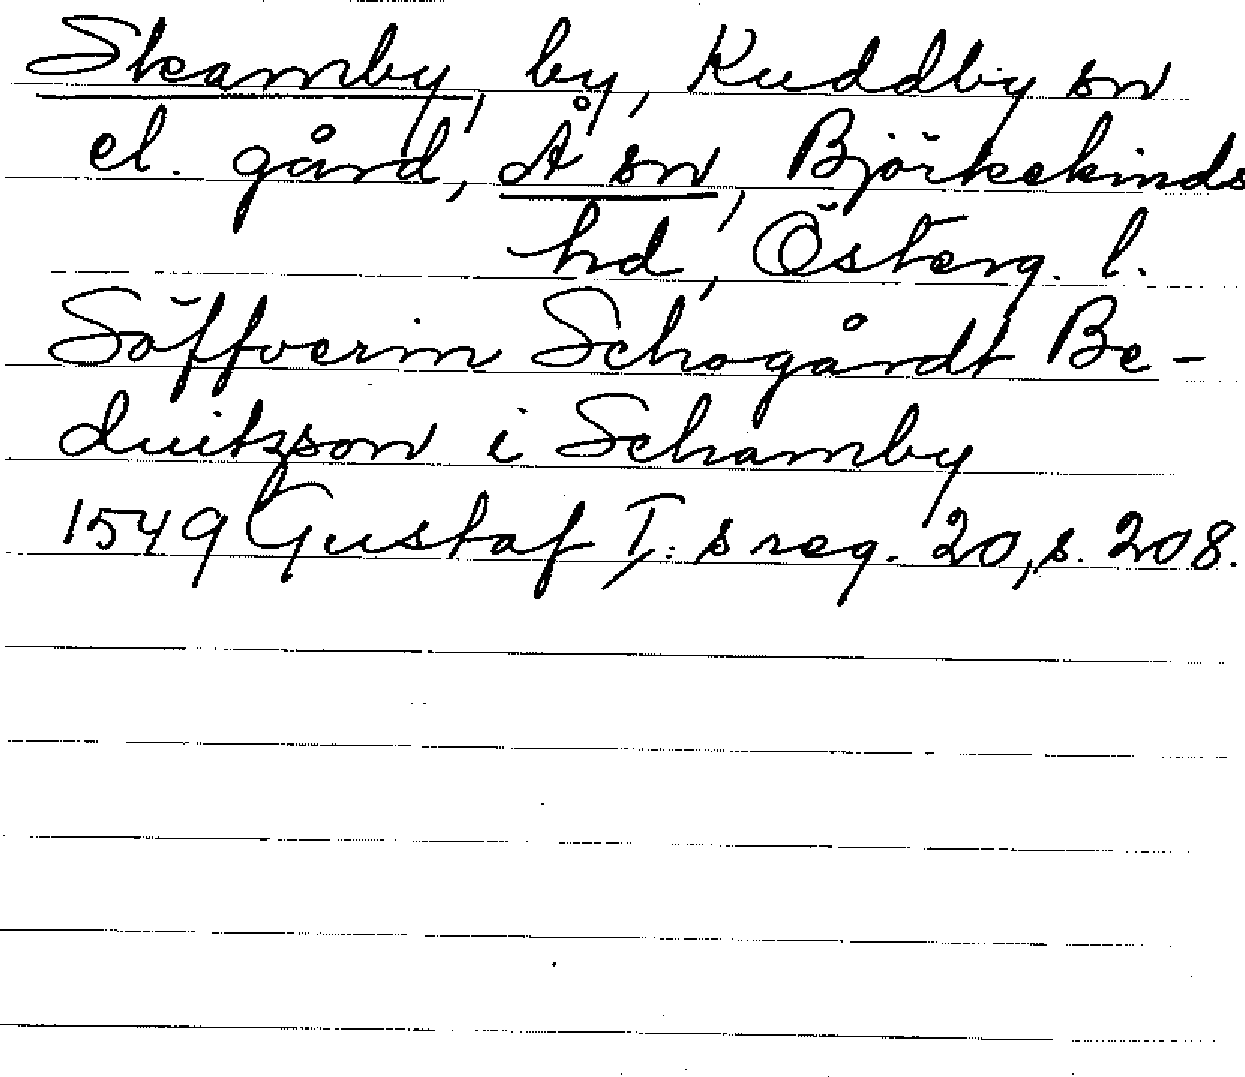 Skamby, by, Kuddby sn
el. gård, Å sn, Björkekinds
hd, Österg. l.
Söffverin Schogårdt Be-
duikson i Schamby
1549 Gustaf I:s reg. 20, s. 208.